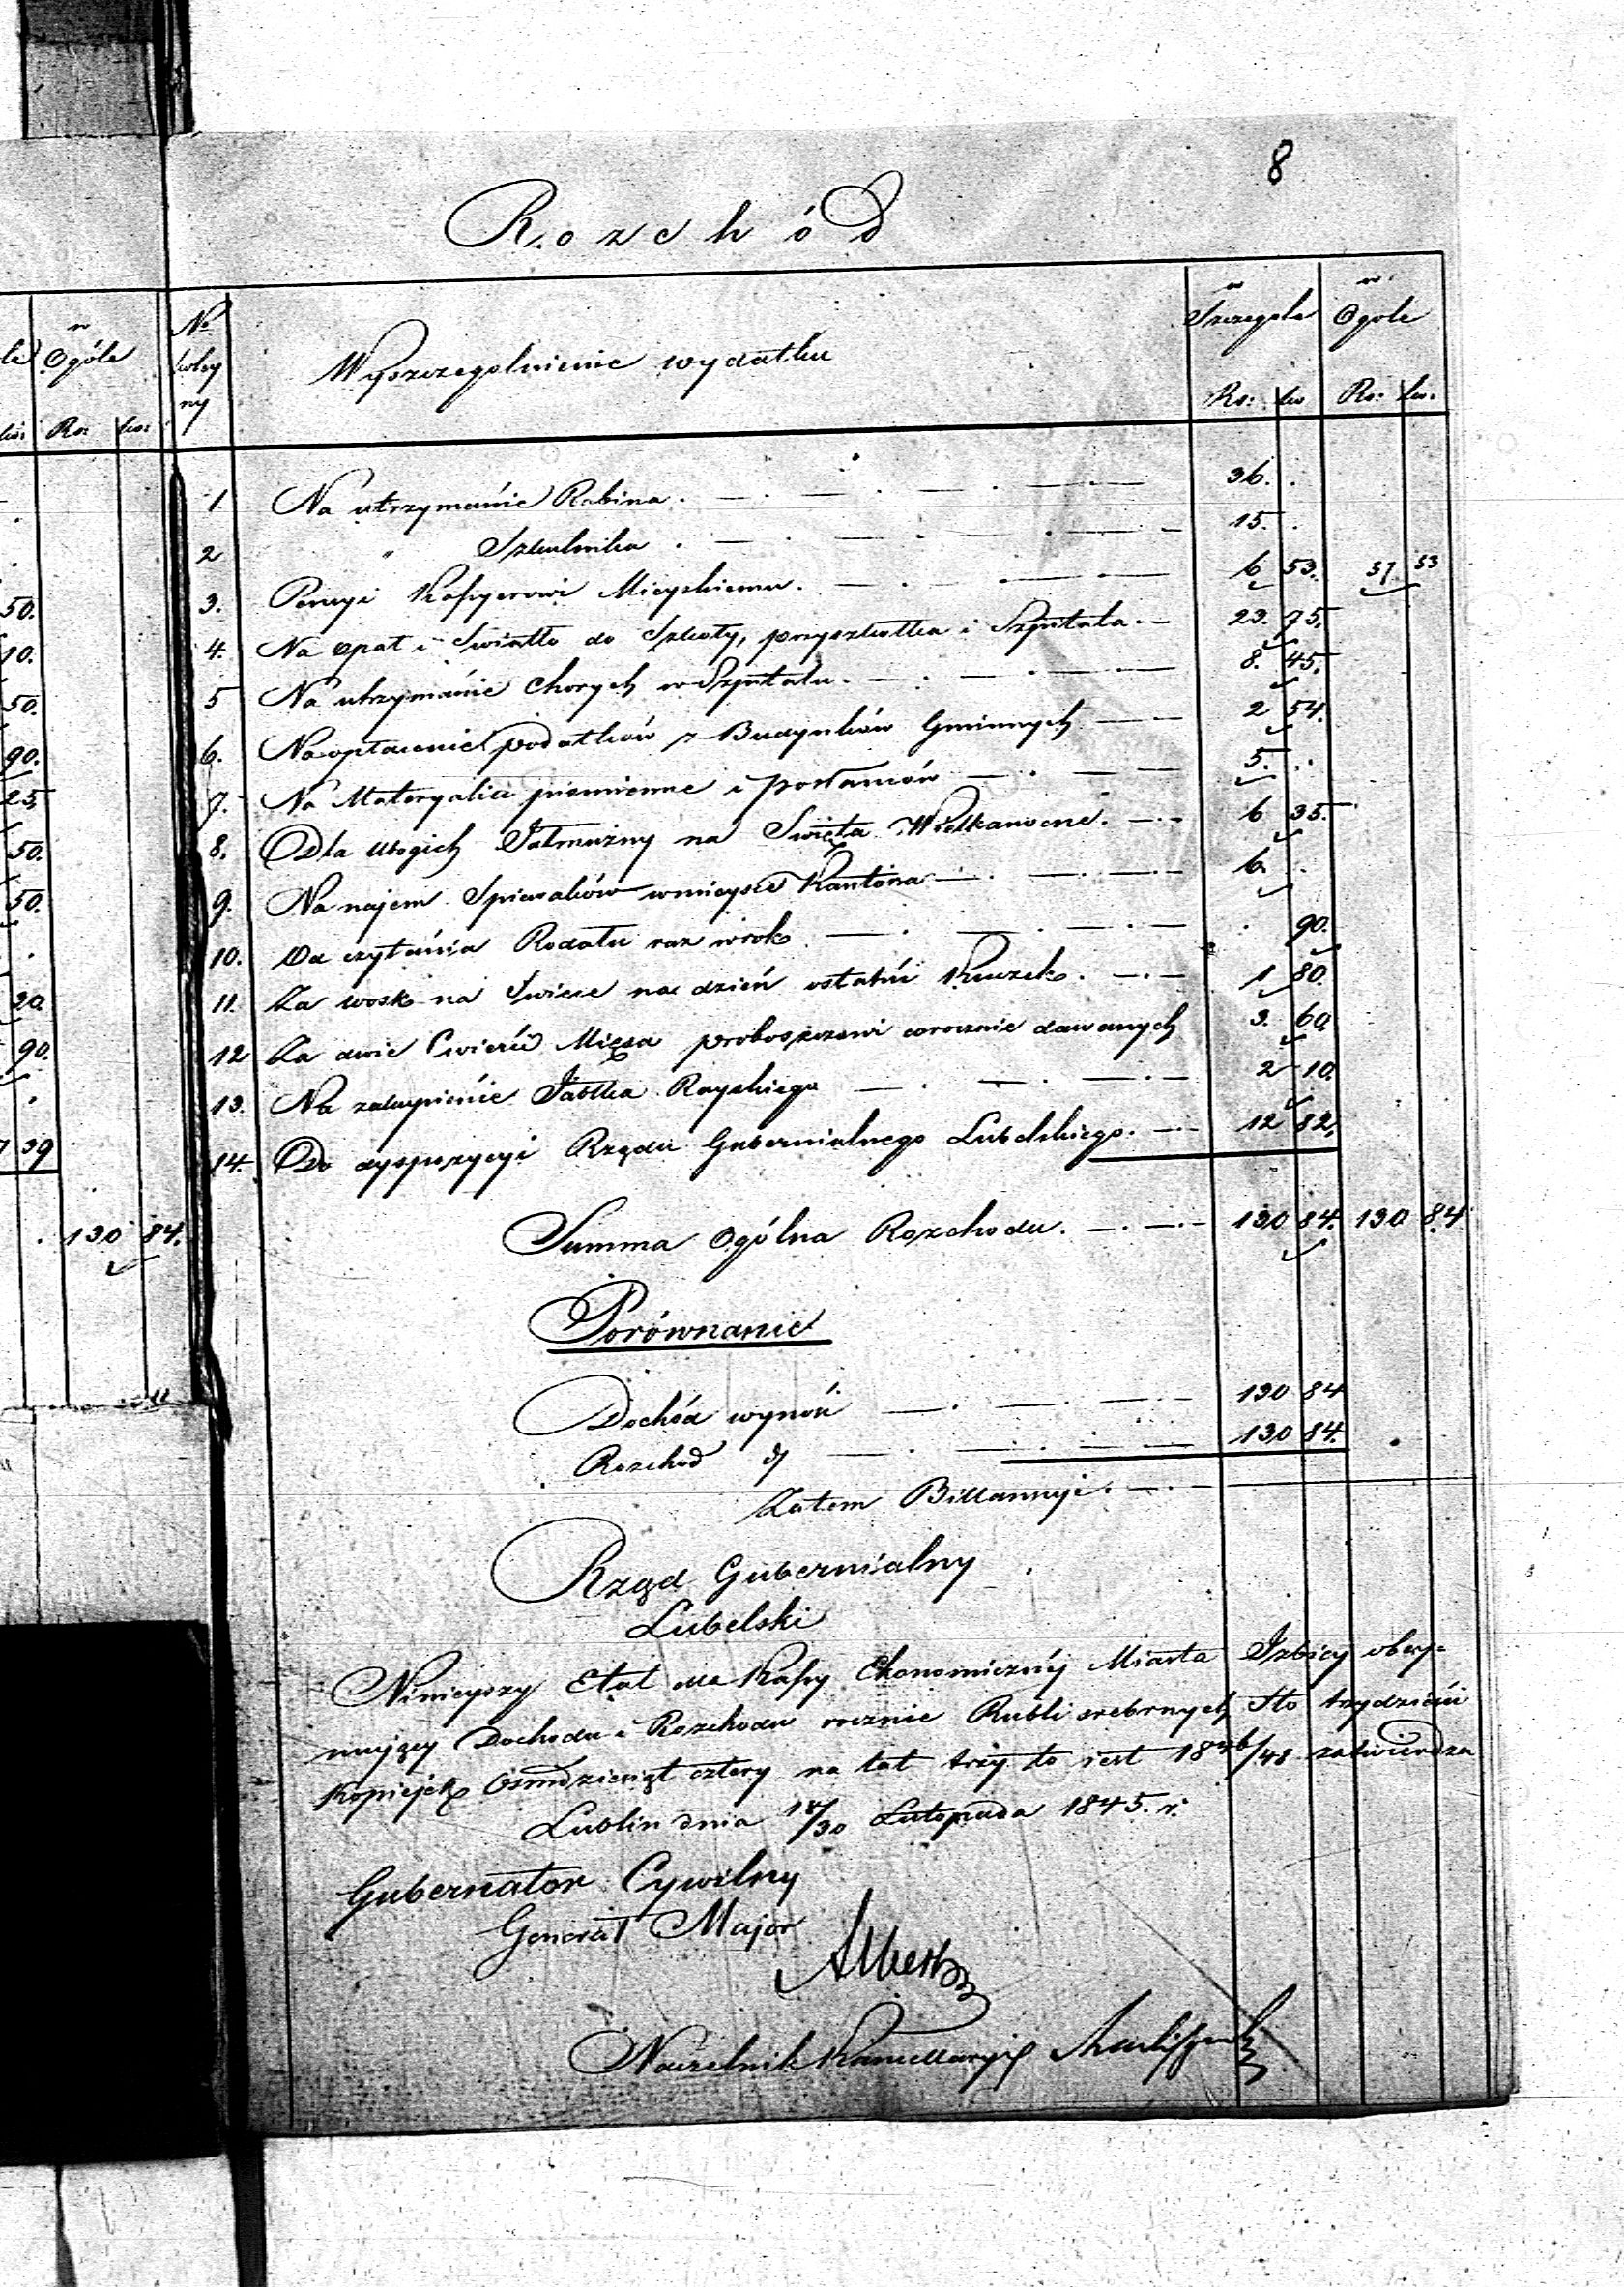 8
Rozchód
No
w Szczegole
w Ogole
w Ogóle
Wyszczegolnienie wydatku
Rs: ko
Rs: ko.
Rs: ko:
1 Na utrzymanie Rabina . 36. .
2 " Szkulnika . 15. .
3. Pensyi Kassyerowi Mieyskiemu. 6 53. 57 53
4. Na opat i Swiatło do Szkoły, przyszkołka i Szpitala. 23. 75.
5 Na utrzymanie Chorych w Szpitalu. 8. 45.
6. Na opłacenie podatków z Budynków Gminnych 2 54.
7. Na Materyalia piśmienne i posłanców 5. .
8. Dla ubogich Jałmużny na Swięta Wielkanocne. 6 35.
9. Na najem Spiewaków w mieysce Kantora 6. .
10. Od czytania Rodału raz w rok . 90.
11. Za wosk na Swiece na dzień ostatni Kuczek. 1 80.
12 Za dwie Cwierci Mięsa proboszczowi corocznie dawanych 3. 60
13. Na zakupienie Jabłka Rayskiego 2 10.
14. Do dyspozycyi Rządu Gubernialnego Lubelskiego. 12 82.
Summa Ogólna Rozchodu. 130 84. 130 84
50.
10.
50.
90.
25.
50.
50.
20.
90.
39
130 84.
Porównanie
Dochód wynosi 130 84
Rozchod 130 84.
Zatem Billansuje.
Rząd Gubernialny
Lubelski
Ninieyszy Etat dla Kassy Ekonomiczney Miasta Izbicy obey-
muiący Dochodu i Rozchodu rocznie Rubli srebrnych Sto trzydzieści
Kopiejek Ośmdziesiąt cztery na lat trzy to iest 1846/48 zatwierdza
Lublin dnia 18/30 Listopada 1845. r.
Gubernator Cywilny
Generał Major
Albertow
Naczelnik Kancellaryi